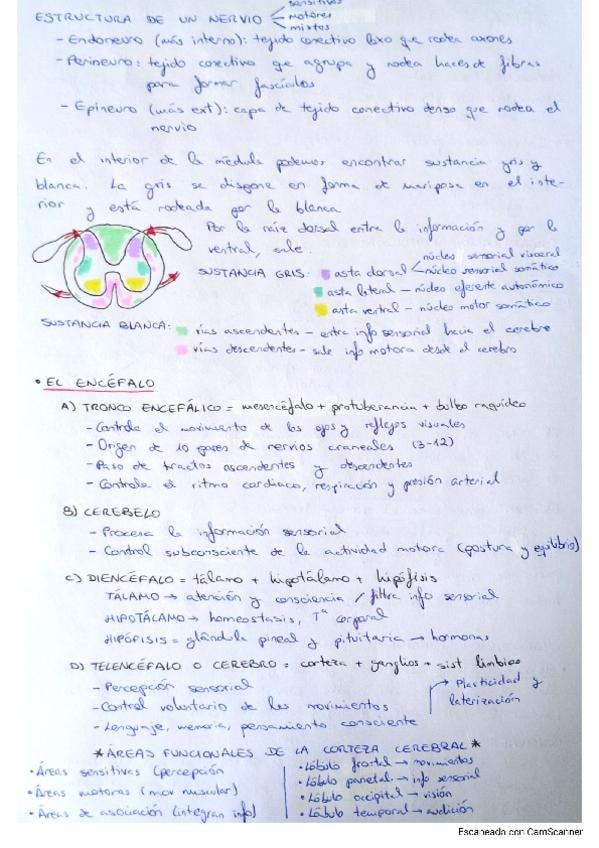 sensitivos
ESTRUCTURA DE UN NERVIO motores
mixtos
- Endoneuro (más interno): tejido conectivo laxo que rodea axones
- Perineuro: tejido conectivo que agrupa y rodea haces de fibras
para formar fascículos
- Epineuro (más ext): capa de tejido conectivo denso que rodea el
nervio
En el interior de la médula podemos encontrar sustancia gris y
blanca. La gris se dispone en forma de mariposa en el inte-
rior y está rodeada por la blanca
Por la raíz dorsal entra la información y por la
ventral, sale.
núcleo sensorial visceral
SUSTANCIA GRIS: asta dorsal núcleo sensorial somático
asta lateral - núcleo eferente autonómico
asta ventral - núcleo motor somático
SUSTANCIA BLANCA: vías ascendentes - entra info sensorial hacia el cerebro
vías descendentes - sale info motora desde el cerebro
• EL ENCÉFALO
A) TRONCO ENCEFÁLICO = mesencéfalo + protuberancia + bulbo raquídeo
- Controla el movimiento de los ojos y reflejos visuales
- Origen de 10 pares de nervios craneales (3-12)
- Paso de tractos ascendentes y descendentes
- Controla el ritmo cardiaco, respiración y presión arterial
B) CEREBELO
- Procesa la información sensorial
- Control subconsciente de la actividad motora (postura y equilibrio)
C) DIENCÉFALO = tálamo + hipotálamo + hipófisis
TÁLAMO → atención y consciencia / filtra info sensorial
HIPOTÁLAMO → homeostasis, Tª corporal
HIPÓFISIS = glándula pineal y pituitaria → hormonas
D) TELENCÉFALO O CEREBRO = corteza + ganglios + sist límbico
- Percepción sensorial
→ Plasticidad y
- Control voluntario de los movimientos
laterización
- Lenguaje, memoria, pensamiento consciente
*ÁREAS FUNCIONALES DE LA CORTEZA CEREBRAL*
• Áreas sensitivas (percepción
• Áreas motoras (mov muscular)
• Áreas de asociación (integran info)
• Lóbulo frontal → movimientos
• Lóbulo parietal → info sensorial
• Lóbulo occipital → visión
• Lóbulo temporal → audición
Escaneado con CamScanner